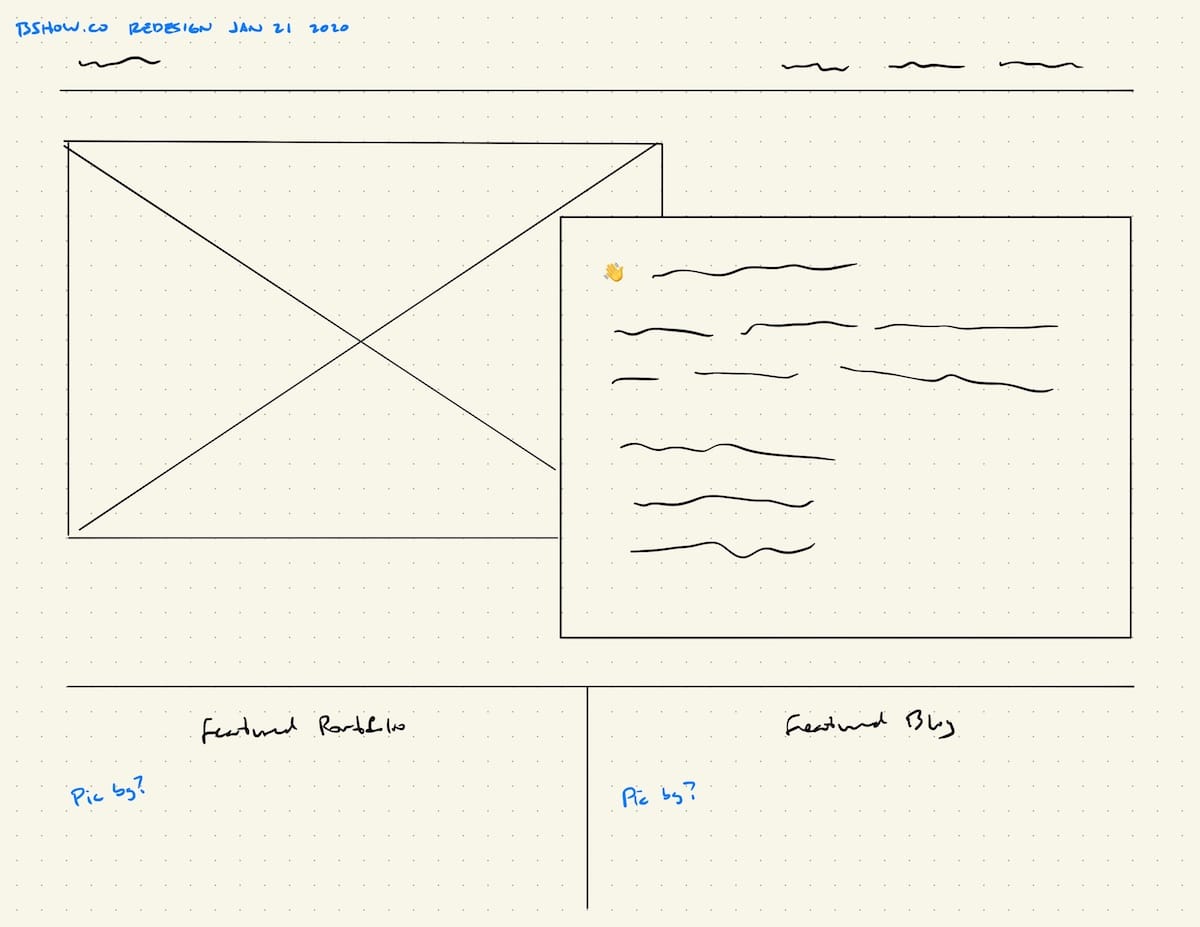 BSHOW.CO REDESIGN JAN 21 2020
👋
Featured Portfolio
Featured Blog
Pic bg?
Pic bg?